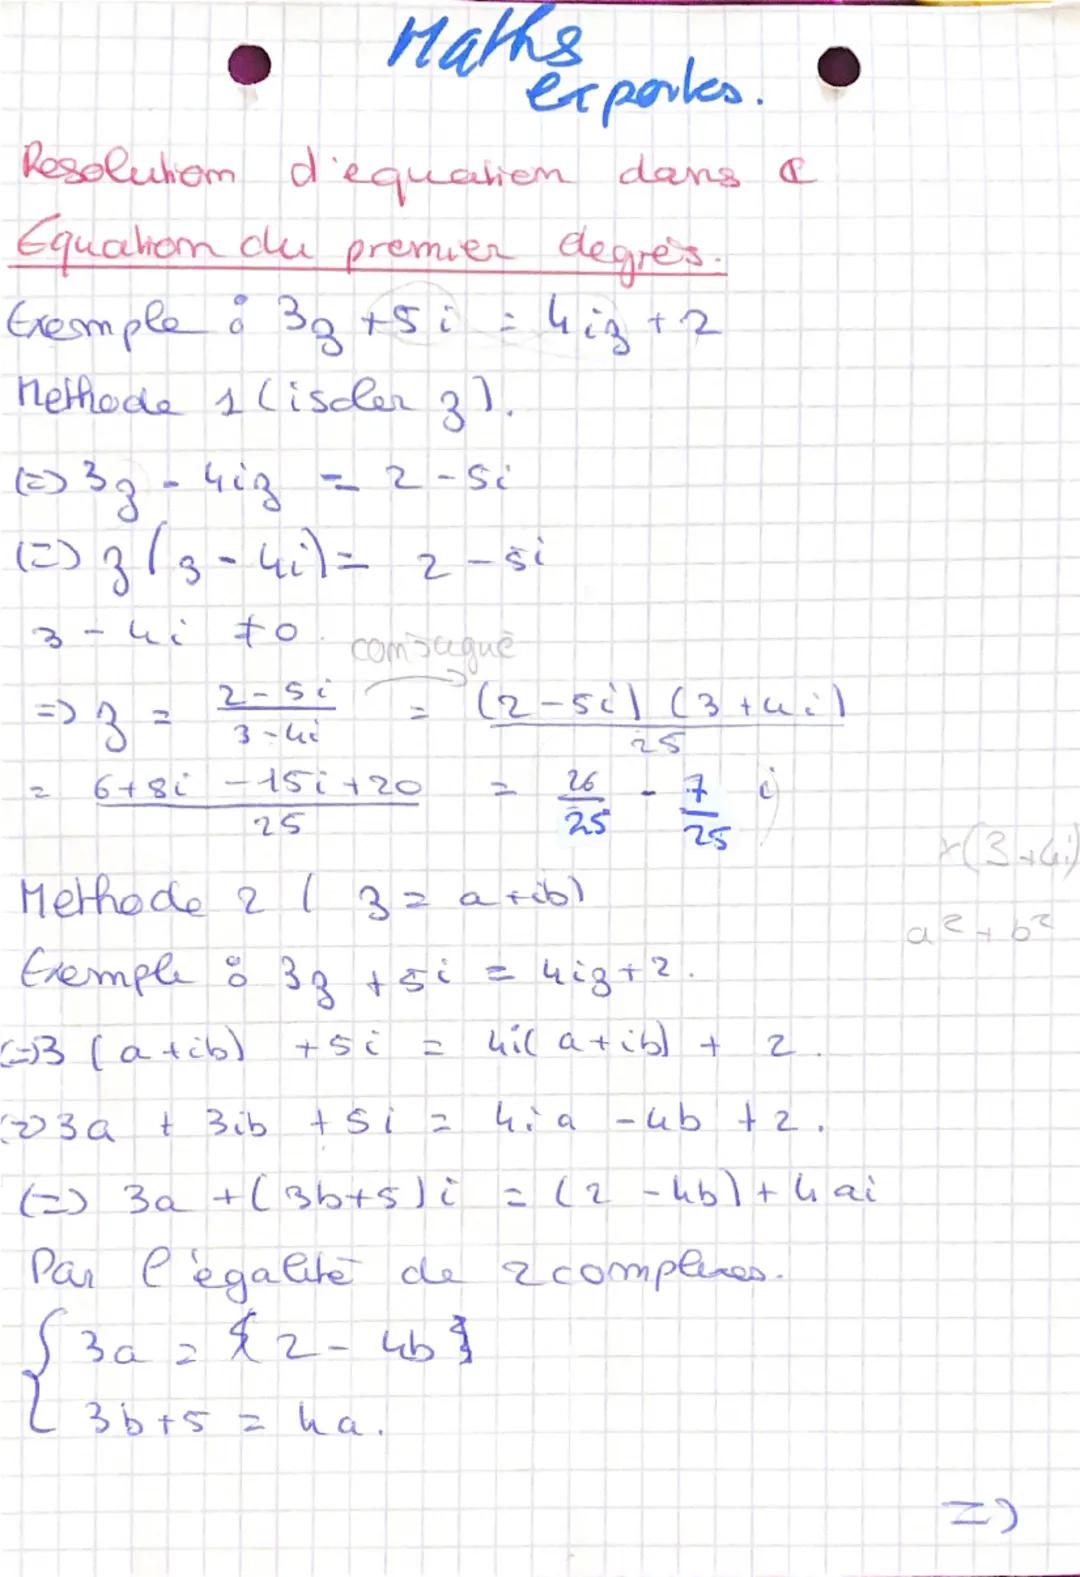 Maths
expertes.
Resolution d'equation dans ℂ
Equation du premier degrès.
Exemple : 3z + 5i = 4iz + 2
Methode 1 (isoler z).
(=) 3z - 4iz = 2 - 5i
(=) z(3 - 4i) = 2 - 5i
3 - 4i ≠ 0.
conjugué
=) z = (2-5i)/(3-4i) = ((2-5i)(3+4i))/25
= (6+8i-15i+20)/25 = 26/25 - 7/25 i
×(3+4i)
Methode 2 ( z = a+ib)
a²+b²
Exemple : 3z + 5i = 4iz + 2.
(=) 3 (a+ib) + 5i = 4i(a+ib) + 2.
(=) 3a + 3ib + 5i = 4ia - 4b + 2.
(=) 3a + (3b+5)i = (2 - 4b) + 4ai
Par l'égalité de 2 complexes.
{ 3a = 2 - 4b
3b+5 = 4a.
=)